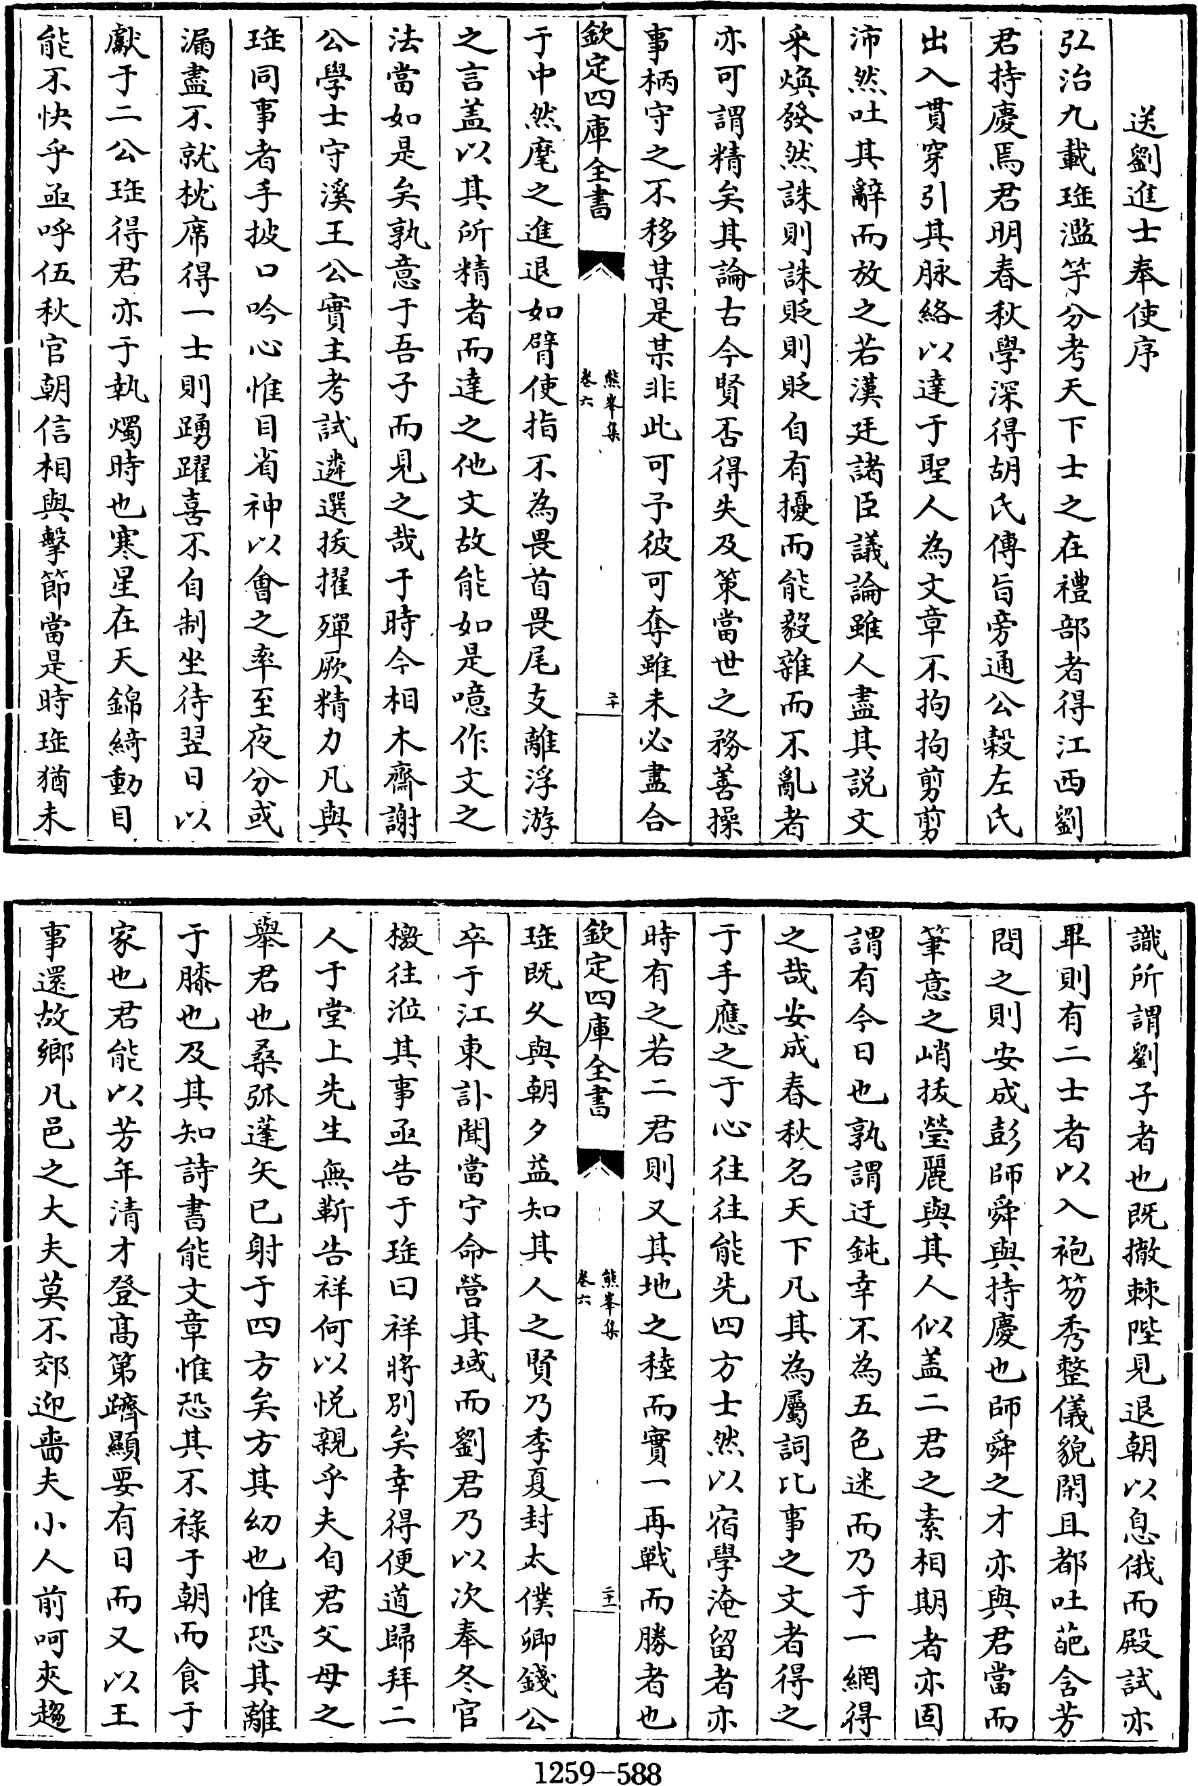 送劉進士奉使序
弘治九載珤濫竽分考天下士之在禮部者得江西劉
君持慶焉君明春秋學深得胡氏傳旨旁通公穀左氏
出入貫穿引其脉絡以達于聖人為文章不拘拘剪剪
沛然吐其辭而放之若漢廷諸臣議論雖人盡其説文
采煥發然誅則誅貶則貶自有擾而能毅雜而不亂者
亦可謂精矣其論古今賢否得失及策當世之務善操
事柄守之不移某是某非此可予彼可奪雖未必盡合
欽定四庫全書
熊峯集
卷六
二十
于中然麾之進退如臂使指不為畏首畏尾支離浮游
之言蓋以其所精者而達之他文故能如是噫作文之
法當如是矣孰意于吾子而見之哉于時今相木齋謝
公學士守溪王公實主考試遴選拔擢殫厥精力凡與
珤同事者手披口吟心惟目省神以會之率至夜分或
漏盡不就枕席得一士則踴躍喜不自制坐待翌日以
獻于二公珤得君亦于執燭時也寒星在天錦綺動目
能不快乎亟呼伍秋官朝信相與擊節當是時珤猶未
識所謂劉子者也既撤棘陛見退朝以息俄而殿試亦
畢則有二士者以入袍笏秀整儀貌閑且都吐葩含芳
問之則安成彭師舜與持慶也師舜之才亦與君當而
筆意之峭拔瑩麗與其人似蓋二君之素相期者亦固
謂有今日也孰謂迂鈍幸不為五色迷而乃于一網得
之哉安成春秋名天下凡其為屬詞比事之文者得之
于手應之于心往往能先四方士然以宿學淹留者亦
時有之若二君則又其地之稑而實一再戰而勝者也
欽定四庫全書
熊峯集
卷六
二十一
珤既久與朝夕益知其人之賢乃季夏封太僕卿錢公
卒于江東訃聞當宁命營其域而劉君乃以次奉冬官
檄往涖其事亟告于珤曰祥將別矣幸得便道歸拜二
人于堂上先生無靳告祥何以悦親乎夫自君父母之
舉君也桑弧蓬矢已射于四方矣方其幼也惟恐其離
于膝也及其知詩書能文章惟恐其不祿于朝而食于
家也君能以芳年清才登高第躋顯要有日而又以王
事還故鄉凡邑之大夫莫不郊迎嗇夫小人前呵夾趨
1259—588